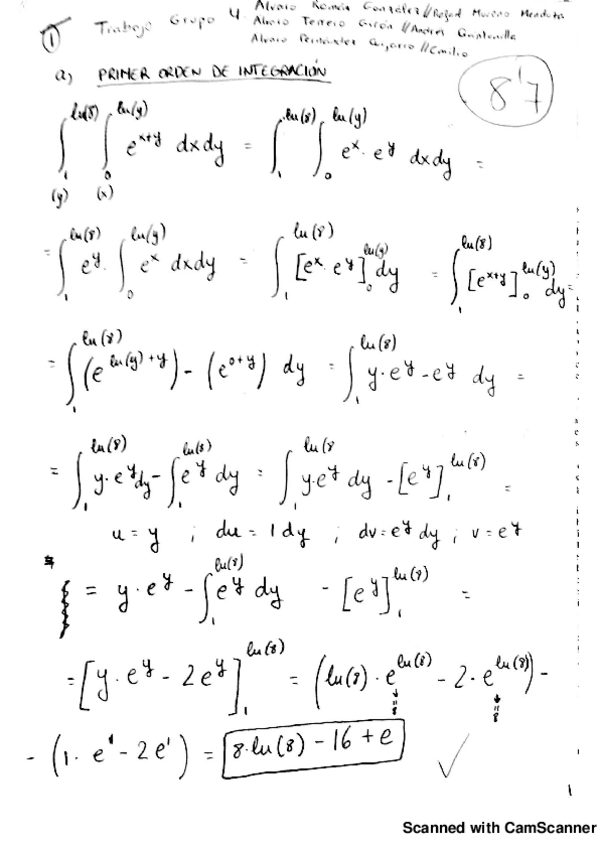 ① Trabajo Grupo 4. Alvaro Román González // Rafael Moreno Mendoza
Alvaro Terrero // Andrés
Alvaro Fernández // Emilio
a) PRIMER ORDEN DE INTEGRACIÓN
8'7
∫₁^{ln(8)} ∫₀^{ln(y)} e^{x+y} dx dy = ∫₁^{ln(8)} ∫₀^{ln(y)} e^x · e^y dx dy =
(y) (x)
= ∫₁^{ln(8)} e^y · ∫₀^{ln(y)} e^x dx dy = ∫₁^{ln(8)} [e^x · e^y]₀^{ln(y)} dy = ∫₁^{ln(8)} [e^{x+y}]₀^{ln(y)} dy =
= ∫₁^{ln(8)} (e^{ln(y)+y}) - (e^{0+y}) dy = ∫₁^{ln(8)} y·e^y - e^y dy =
= ∫₁^{ln(8)} y·e^y dy - ∫₁^{ln(8)} e^y dy = ∫₁^{ln(8} y·e^y dy - [e^y]₁^{ln(8)} =
u = y ; du = 1 dy ; dv = e^y dy ; v = e^y
= y·e^y - ∫₁^{ln(8)} e^y dy - [e^y]₁^{ln(8)} =
= [y·e^y - 2e^y]₁^{ln(8)} = (ln(8)·e^{ln(8)} - 2·e^{ln(8)}) -
- (1·e¹ - 2e¹) = 8·ln(8) - 16 + e ✓
1
Scanned with CamScanner